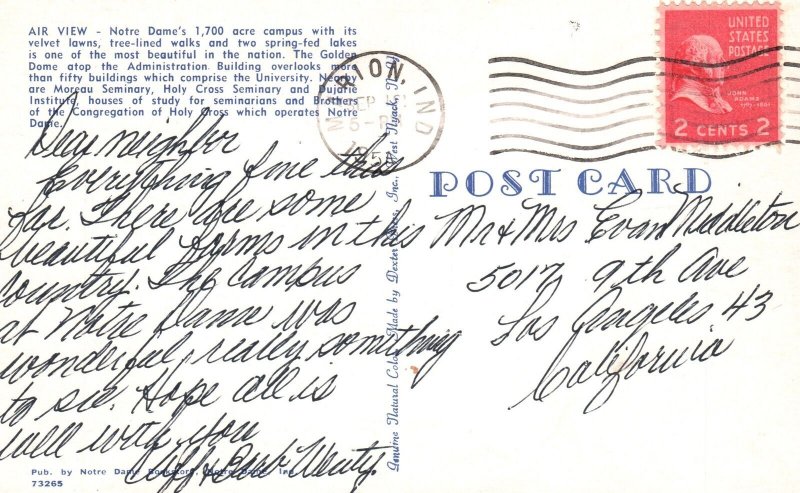 AIR VIEW - Notre Dame's 1,700 acre campus with its
velvet lawns, tree-lined walks and two spring-fed lakes
is one of the most beautiful in the nation. The Golden
Dome atop the Administration Building overlooks more
than fifty buildings which comprise the University. Nearby
are Moreau Seminary, Holy Cross Seminary and Dujarie
Institute, houses of study for seminarians and Brothers
of the Congregation of Holy Cross which operates Notre
Dame.
Dear neighbor
Everything fine this
far. There are some
beautiful farms in this
country. The campus
at Notre Dame was
wonderful, really something
to see. Hope all is
well with you
Pub. by Notre Dame Bookstore, Notre Dame, Ind.
73265
Genuine Natural Color Made by Dexter Press, Inc., West Nyack, N.Y.
MARION, IND
SEP
UNITED
STATES
POSTAGE
JOHN
ADAMS
1797-1801
2 CENTS 2
POST CARD
Mr & Mrs Evan Middleton
5017 9th Ave
Los Angeles 43
California